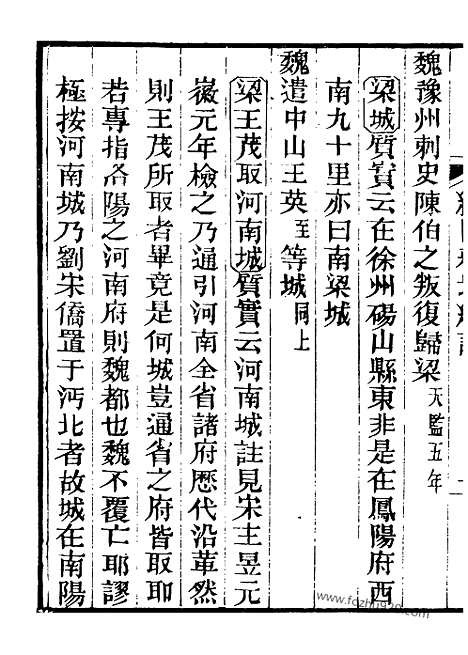 魏豫州刺史陳伯之叛復歸梁天監五年
梁城質實云在徐州碭山縣東非是在鳳陽府西
南九十里亦曰南梁城
魏遣中山王英至等城同上
梁王茂取河南城質實云河南城註見宋主昱元
徽元年檢之乃通引河南全省諸府歷代沿革然
則王茂所取者畢竟是何城豈通省之府皆取耶
若專指洛陽之河南府則魏都也魏不覆亡耶謬
極按河南城乃劉宋僑置于沔北者故城在南陽
www.fozhu920.com